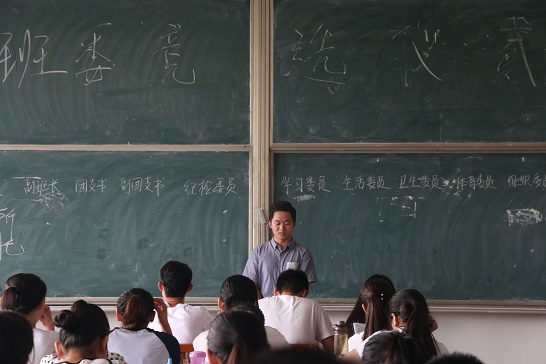 班委竞选仪式
副班长 团支书 副团支书 纪检委员 学习委员 生活委员 卫生委员 体育委员 组织委员